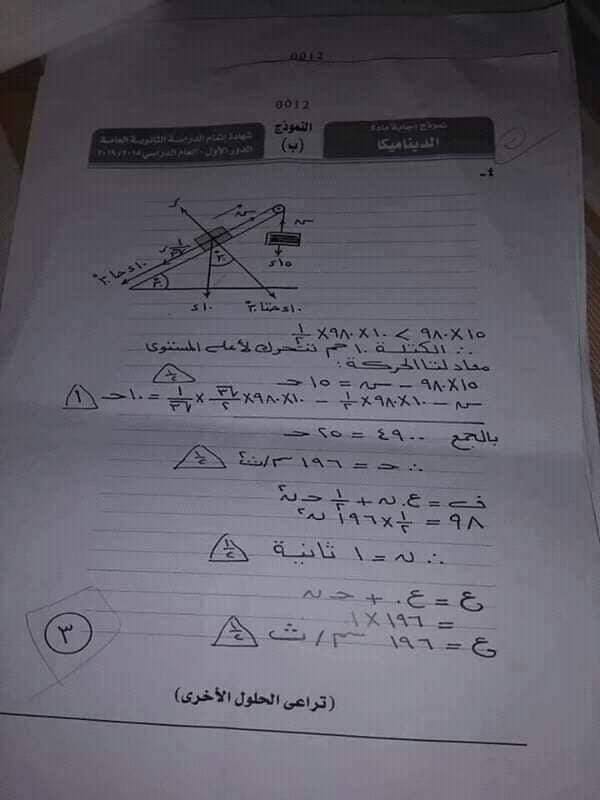 0012
0012
شهادة إتمام الدراسة الثانوية العامة
الدور الأول - العام الدراسي ٢٠١٨/٢٠١٩
النموذج
(ب)
نموذج إجابة مادة
الديناميكا
٤-
س
س
ر
١٥ء
٣٠°
١٠ء حا ٣٠°
٣٠°
١٠ء
١٠ء حتا ٣٠°
١٥ × ٩٨٠ > ١٠ × ٩٨٠ × ١/٢
∴ الكتلة ١٠ جم تتحرك لأعلى المستوى
معادلتا الحركة:
١٥ × ٩٨٠ - س = ١٥ حـ ١/٢
س - ١٠ × ٩٨٠ × ١/٢ - ١٠ × ٩٨٠ × √٣/٢ × ١/√٣ = ١٠ حـ ١
بالجمع ٤٩٠٠ = ٢٥ حـ
∴ حـ = ١٩٦ سم/ث² ١/٢
ف = ع٠ ن + ١/٢ حـ ن²
٩٨ = ١/٢ × ١٩٦ ن²
∴ ن = ١ ثانية ١/٢
ع = ع٠ + حـ ن
= ١٩٦ × ١
ع = ١٩٦ سم/ث ١/٢
٣
(تراعى الحلول الأخرى)